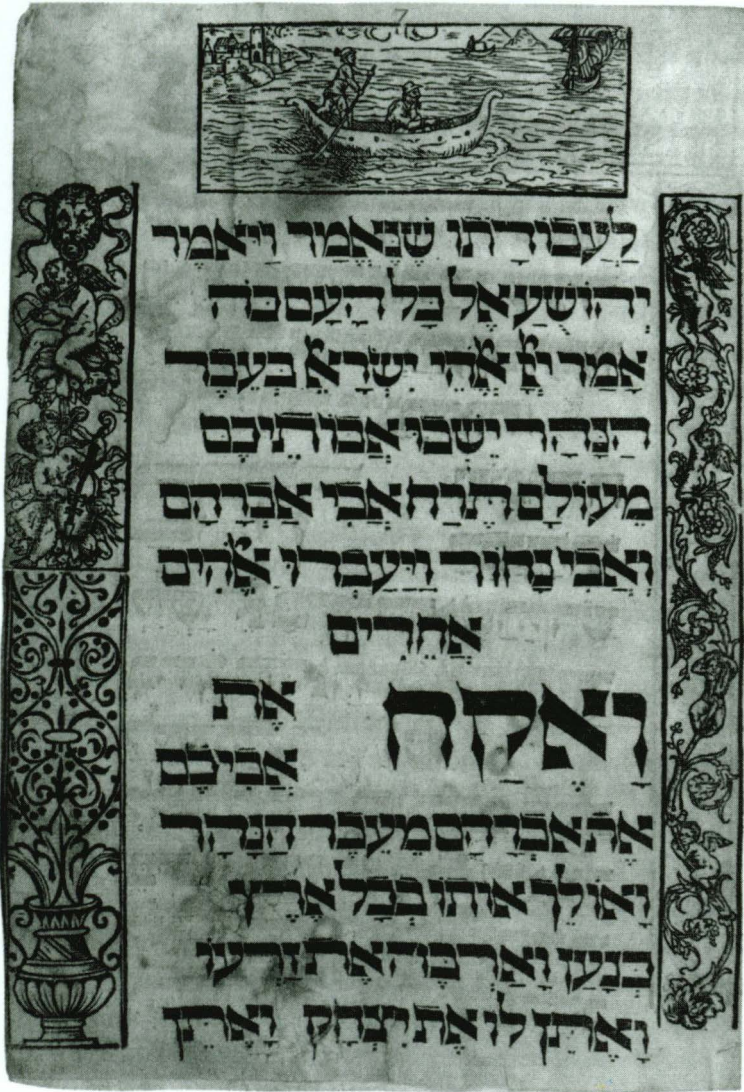 7
לַעֲבוֹדָתוֹ שֶׁנֶּאֱמַר וַיֹּאמֶר
יְהוֹשֻׁעַ אֶל כָּל הָעָם כֹּה
אָמַר יְיָ אֱלֹהֵי יִשְׂרָאֵל בְּעֵבֶר
הַנָּהָר יָשְׁבוּ אֲבוֹתֵיכֶם
מֵעוֹלָם תֶּרַח אֲבִי אַבְרָהָם
וַאֲבִי נָחוֹר וַיַּעַבְדוּ אֱלֹהִים
אֲחֵרִים
וָאֶקַּח אֶת
אֲבִיכֶם
אֶת אַבְרָהָם מֵעֵבֶר הַנָּהָר
וָאוֹלֵךְ אוֹתוֹ בְּכָל אֶרֶץ
כְּנַעַן וָאַרְבֶּה אֶת זַרְעוֹ
וָאֶתֵּן לוֹ אֶת יִצְחָק וָאֶתֵּן